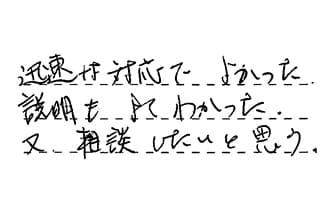 迅速な対応で よかった.
説明も よくわかった.
又、相談したいと思う.